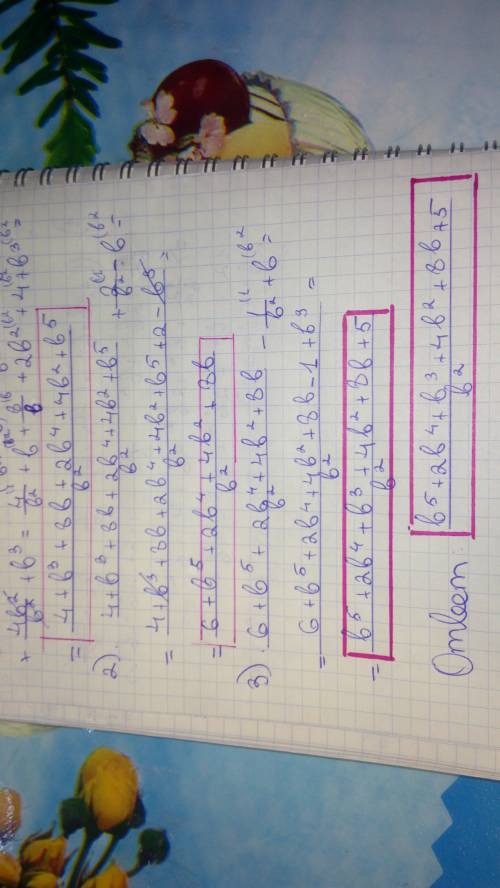 + 4b²/b² + b³ = 4/b² + b + 3b/b + 2b² + 4 + b³ =
= (4+b³+3b+2b⁴+4b²+b⁵)/b²
2). (4+b³+3b+2b⁴+4b²+b⁵)/b² + 2/b² - b =
= (4+b³+3b+2b⁴+4b²+b⁵+2-b³)/b² =
= (6+b⁵+2b⁴+4b²+3b)/b²
3). (6+b⁵+2b⁴+4b²+3b)/b² - 1/b² + b =
= (6+b⁵+2b⁴+4b²+3b-1+b³)/b² =
= (b⁵+2b⁴+b³+4b²+3b+5)/b²
Ответ: (b⁵+2b⁴+b³+4b²+3b+5)/b²